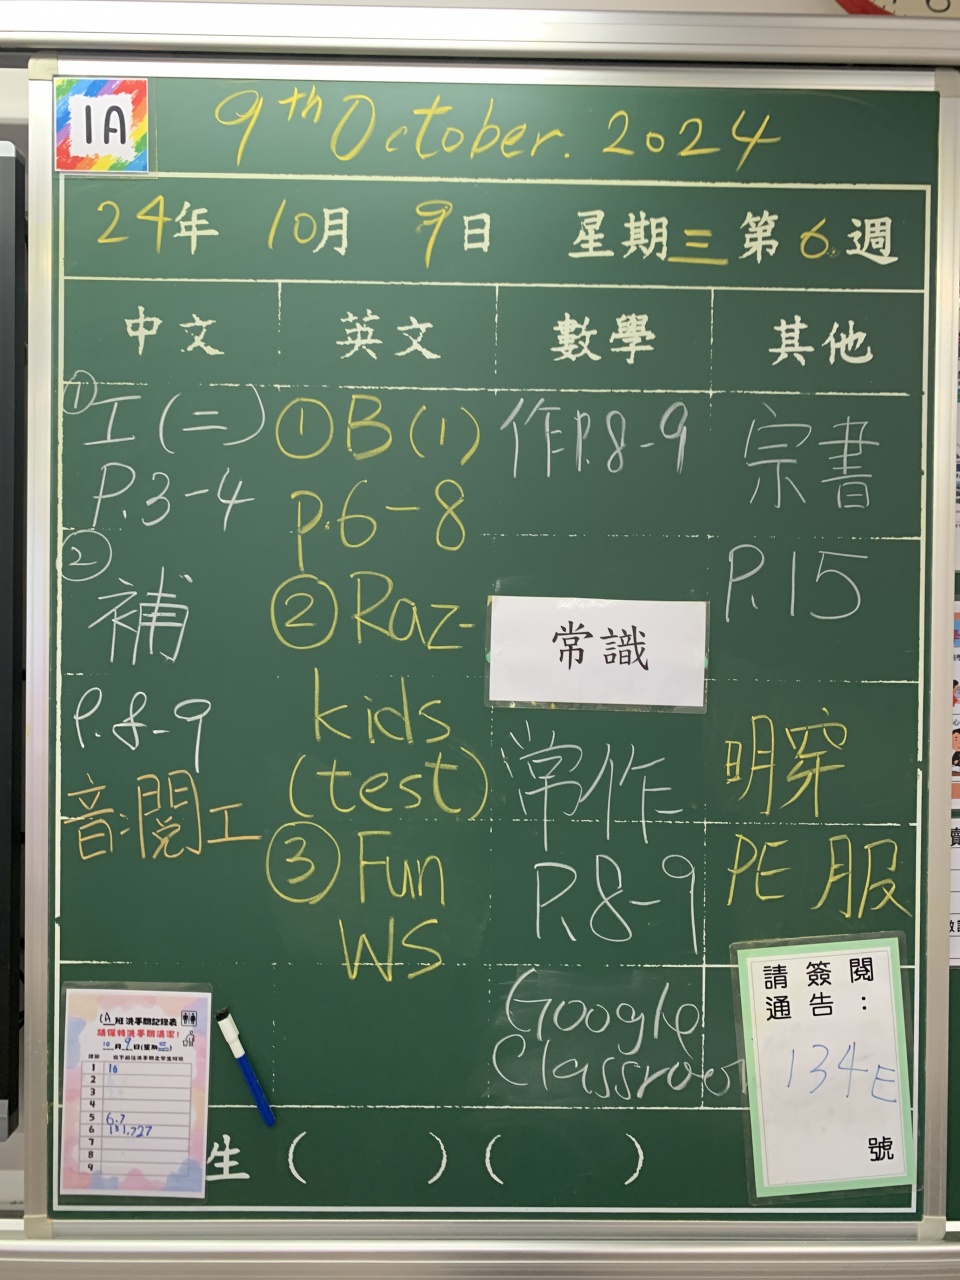 1A
9th October. 2024
24年 10月 9日 星期三 第6週
中文
英文
數學
其他
① 工(二)
P.3-4
②
補
P.8-9
音:閱工
① B(1)
p.6-8
② Raz-
kids
(test)
③ Fun
WS
作P.8-9
常識
常作
P.8-9
Google
Classroo
宗書
P.15
明穿
PE 服
請簽閱
通告：
134E
號
1A班洗手間記錄表
請保持洗手間清潔！
10月9日(星期三)
1 16
2
3
4
5 6.7
6
7
8
9
生 ( ) ( )